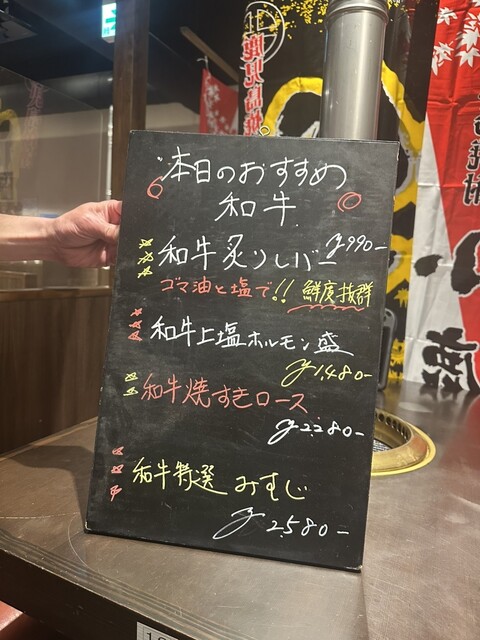 本日のおすすめ
和牛
和牛炙りレバー ¥990-
ゴマ油と塩で!! 鮮度抜群
和牛上塩ホルモン盛
¥1,480-
和牛焼すきロース
¥2280-
和牛特選 みすじ
¥2,580-
鹿児島